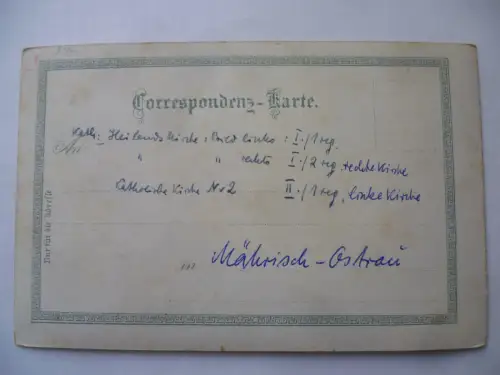 Correspondenz-Karte.
Kath: Heilandskirche, Bild links: I./1 reg.
" " rechts I./2 reg. rechte Kirche
An
Catholische Kirche Nr 2 II./1 reg, linke Kirche
Nur für die Adresse
Mährisch-Ostrau